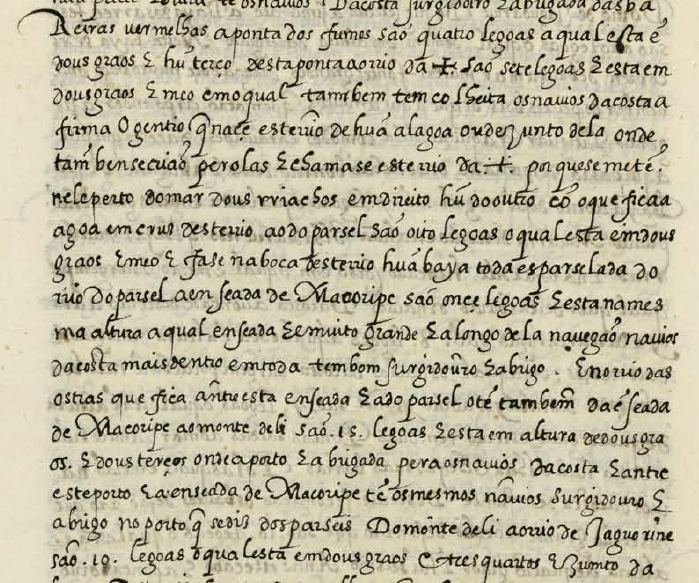 te os navios da costa surgidoiro & abrigada das ba
Reiras vermelhas a ponta dos fumos saõ quatro legoas a qual esta ẽ
dous graos & hũ terço desta ponta ao rio da ✝ saõ sete legoas & esta em
dous graos & meo em o qual tambem tem colheita os navios da costa a
firma O gentio q̃ naçe este rio de huã alagoa ou de junto dela onde
tambem se criaõ perolas & chamase este rio da .✝. porque se metẽ
nele perto do mar dous rriachos em direito hũ do outro cõ o que fica a
agoa em crus deste rio ao do parsel saõ oito legoas o qual esta em dous
graos & meo & fase na boca deste rio huã baya toda esparselada do
rio do parsel a enseada de Macoripe saõ onçe legoas & esta na mes
ma altura a qual enseada he muito grande & ao longo dela navegaõ navios
da costa mas dentro em toda tem bom surgidouro & abrigo. E no rio das
ostras que fica antre esta enseada & a do parsel o tẽ tambem da ẽseada
de Macoripe ao monte de li saõ .15. legoas & esta em altura de dous gra
os. & dous terços onde a porto & abrigada pera os navios da costa & antre
este porto & a enseada de Macoripe tẽ os mesmos navios surgidouro &
abrigo no porto q̃ se dis dos parseis Do monte de li ao rio de Jaguorive
saõ .10. legoas o qual esta em dous graos & tres quartos & junto da